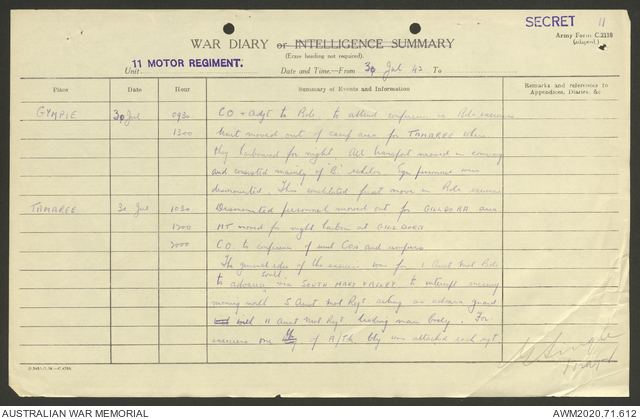 SECRET 11
Army Form C.2118
(adapted.)
WAR DIARY or INTELLIGENCE SUMMARY
(Erase heading not required).
11 MOTOR REGIMENT.
Unit
Date and Time—From 30 Jul 42 To
Place Date Hour Summary of Events and Information Remarks and references to Appendices, Diaries, &c
GYMPIE 30 Jul 0930 CO + Adjt to Bde. to attend conference re Bde exercise
1300 Unit moved out of camp area for TAMAREE where
they harboured for night. All transport moved in convoy
and consisted mainly of 'B' echelon. Sqn personnel were
dismounted. This constituted first move in Bde exercise
TAMAREE 31 Jul 1030 Dismounted personnel moved out for GILLDORA area
1700 MT moved for night harbour at GILLDORA
2000 CO. to conference of unit COs and umpires
The general idea of the exercise was for 1 Aust Mot Bde
to advance south via SOUTH MARY VALLEY to intercept enemy
moving north 5 Aust Mot Regt acting as advance guard
11 Aust Mot Regt leading main body. For
exercises one of A/Tk Bty was attached each regt
AUSTRALIAN WAR MEMORIAL AWM2020.71.612